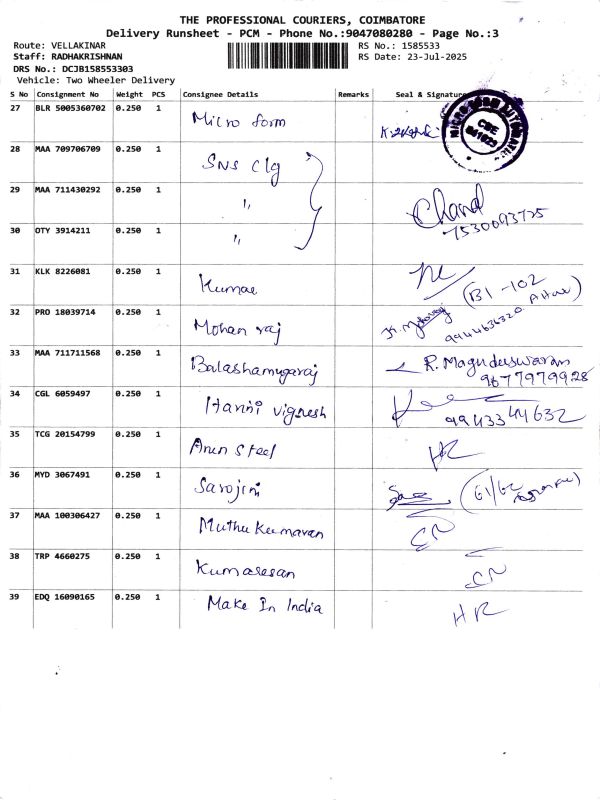 THE PROFESSIONAL COURIERS, COIMBATORE
Delivery Runsheet - PCM - Phone No.:9047080280 - Page No.:3
Route: VELLAKINAR
Staff: RADHAKRISHNAN
DRS No.: DCJB158553303
Vehicle: Two Wheeler Delivery
RS No.: 1585533
RS Date: 23-Jul-2025
S No Consignment No Weight PCS Consignee Details Remarks Seal & Signature
27 BLR 5005360702 0.250 1 Micro form
28 MAA 709706709 0.250 1 SNS Clg
29 MAA 711430292 0.250 1 " Chand
7530093725
30 OTY 3914211 0.250 1 "
31 KLK 8226081 0.250 1 Kumar (B1-102
32 PRO 18039714 0.250 1 Mohan raj
9944636320
33 MAA 711711568 0.250 1 Balashamugaraj R. Magudeswaran
9677979928
34 CGL 6059497 0.250 1 Hanni vignesh
9943344632
35 TCG 20154799 0.250 1 Arun Steel HR
36 MYD 3067491 0.250 1 Sarojini
37 MAA 100306427 0.250 1 Muthu Kumaran
38 TRP 4660275 0.250 1 Kumaresan
39 EDQ 16090165 0.250 1 Make In India HR